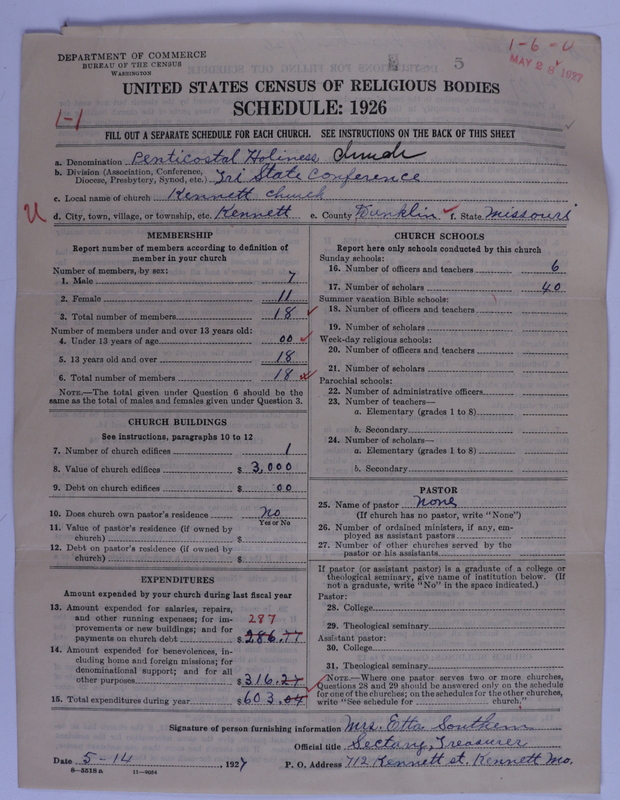 DEPARTMENT OF COMMERCE
BUREAU OF THE CENSUS
WASHINGTON
5
1-6-U
MAY 28 1927
UNITED STATES CENSUS OF RELIGIOUS BODIES
SCHEDULE: 1926
1-1
FILL OUT A SEPARATE SCHEDULE FOR EACH CHURCH. SEE INSTRUCTIONS ON THE BACK OF THIS SHEET
a. Denomination Penticostal Holiness Church
b. Division (Association, Conference, Diocese, Presbytery, Synod, etc.) Tri State Conference
c. Local name of church Kennett Church
U
d. City, town, village, or township, etc. Kennett e. County Dunklin f. State Missouri
MEMBERSHIP
Report number of members according to definition of
member in your church
Number of members, by sex:
1. Male 7
2. Female 11
3. Total number of members 18
Number of members under and over 13 years old:
4. Under 13 years of age 00
5. 13 years old and over 18
6. Total number of members 18
NOTE.—The total given under Question 6 should be
same as the total of males and females given under Question 3.
CHURCH BUILDINGS
See instructions, paragraphs 10 to 12
7. Number of church edifices 1
8. Value of church edifices $ 3,000
9. Debt on church edifices $ 00
10. Does church own pastor's residence No
Yes or No
11. Value of pastor's residence (if owned by
church) $
12. Debt on pastor's residence (if owned by
church) $
EXPENDITURES
Amount expended by your church during last fiscal year
13. Amount expended for salaries, repairs,
and other running expenses; for im- 287
provements or new buildings; and for
payments on church debt $ 286.77
14. Amount expended for benevolences, in-
cluding home and foreign missions; for
denominational support; and for all
other purposes $ 316.27
15. Total expenditures during year $ 603.04
CHURCH SCHOOLS
Report here only schools conducted by this church
Sunday schools:
16. Number of officers and teachers 6
17. Number of scholars 40
Summer vacation Bible schools:
18. Number of officers and teachers
19. Number of scholars
Week-day religious schools:
20. Number of officers and teachers
21. Number of scholars
Parochial schools:
22. Number of administrative officers
23. Number of teachers—
a. Elementary (grades 1 to 8)
b. Secondary
24. Number of scholars—
a. Elementary (grades 1 to 8)
b. Secondary
PASTOR
25. Name of pastor None
(If church has no pastor, write "None")
26. Number of ordained ministers, if any, em-
ployed as assistant pastors
27. Number of other churches served by the
pastor or his assistants
If pastor (or assistant pastor) is a graduate of a college or
theological seminary, give name of institution below. (If
not a graduate, write "No" in the space indicated.)
Pastor:
28. College
29. Theological seminary
Assistant pastor:
30. College
31. Theological seminary
NOTE.—Where one pastor serves two or more churches,
Questions 28 and 29 should be answered only on the schedule
for one of the churches; on the schedules for the other churches,
write "See schedule for church."
Signature of person furnishing information Mrs. Etta Southern
Official title Sectary, Treasurer
Date 5-14, 1927 P. O. Address 712 Kennett st. Kennett Mo.
8-5518 a 11-9054